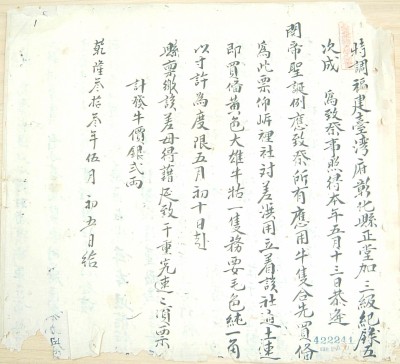 特調福建臺灣府彰化縣正堂加三級紀錄五
次成 為致祭事照得本年五月十三日恭逢
關帝聖誕例應致祭所有應用牛隻合先買備
為此票仰 裡社討差洪用立着該社通土速
即買備黃色大雄牛牯一隻務要毛色純一角
以寸許為度限五月初十日赴
縣稟繳該差毋得藉延致干重究速速須票
計發牛價銀弍兩
乾隆叁拾叁年伍月 初五日給
422241